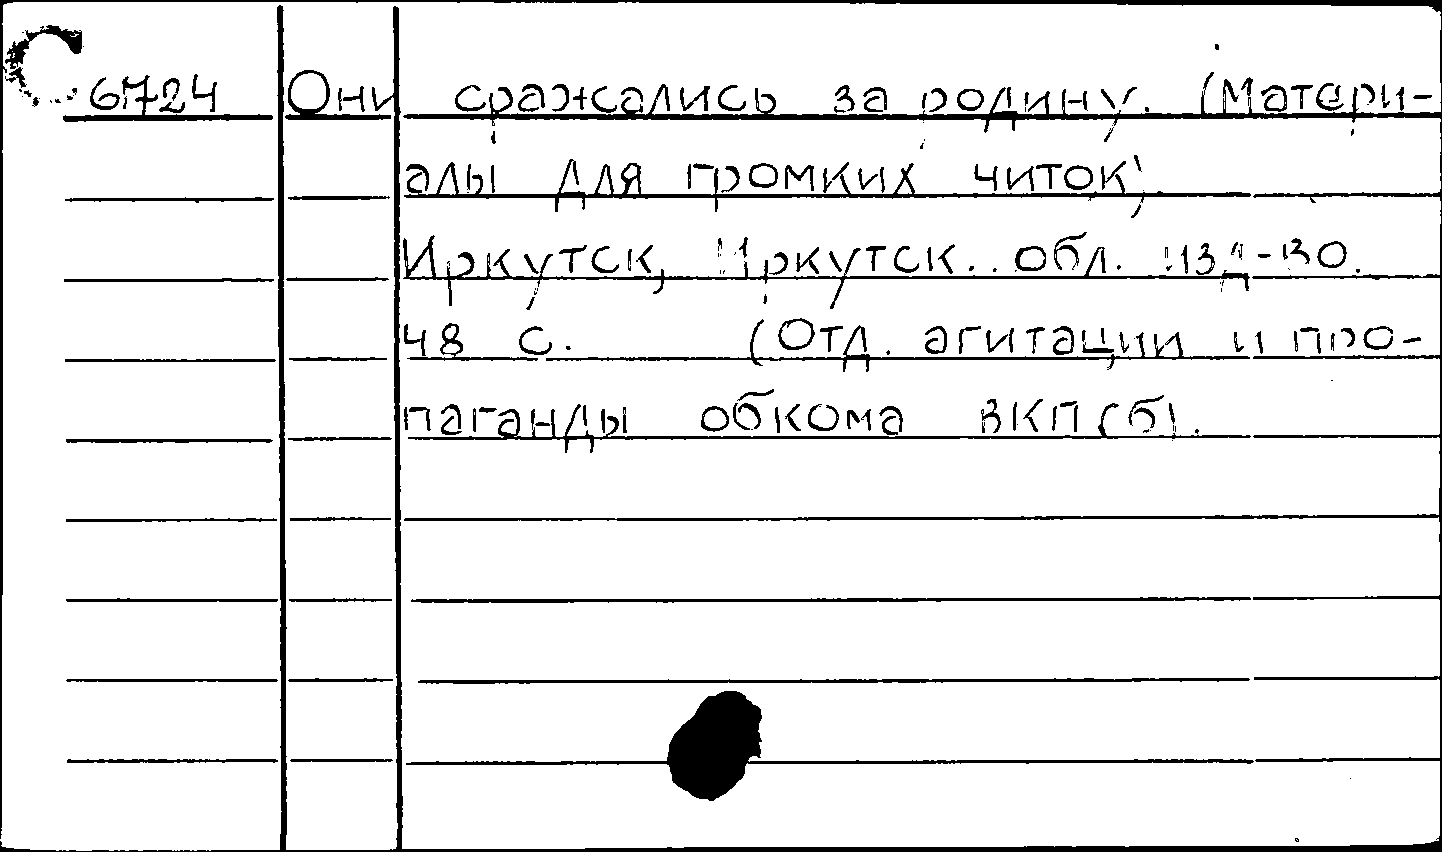 С 6724 Они сражались за родину. (Матери-
алы для громких читок)
Иркутск, Иркутск. обл. изд-во.
48 с. (Отд. агитации и про-
паганды обкома ВКП(б).